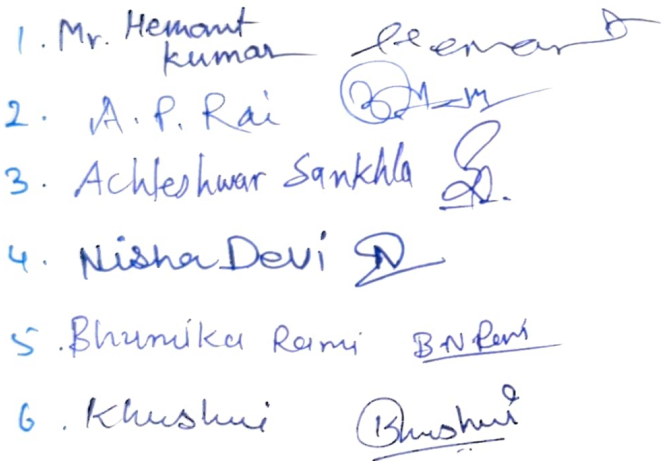 1. Mr. Hemant Hemant
kumar
2. A. P. Rai
3. Achleshwar Sankhla
4. Nisha Devi N
5. Bhumika Rami BN Rami
6. Khushui Khushui